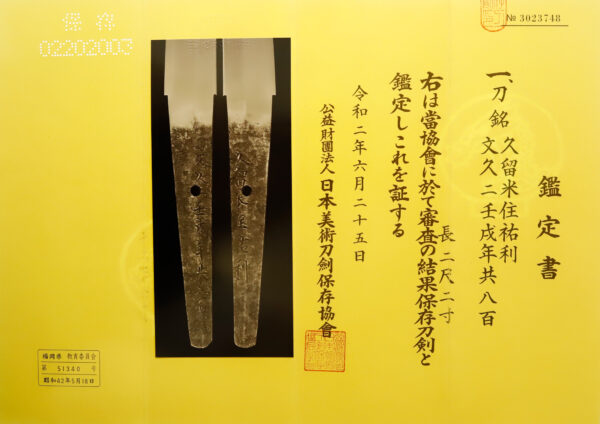 № 3023748
鑑定書
一、刀 銘 久留米住祐利
文久二壬戌年共八百
長二尺二寸
右は當協會に於て審査の結果保存刀剣と
鑑定しこれを証する
令和二年六月二十五日
公益財團法人 日本美術刀劍保存協會
保存
02202003
福岡県 教育委員会
第 51340 号
昭和42年5月18日